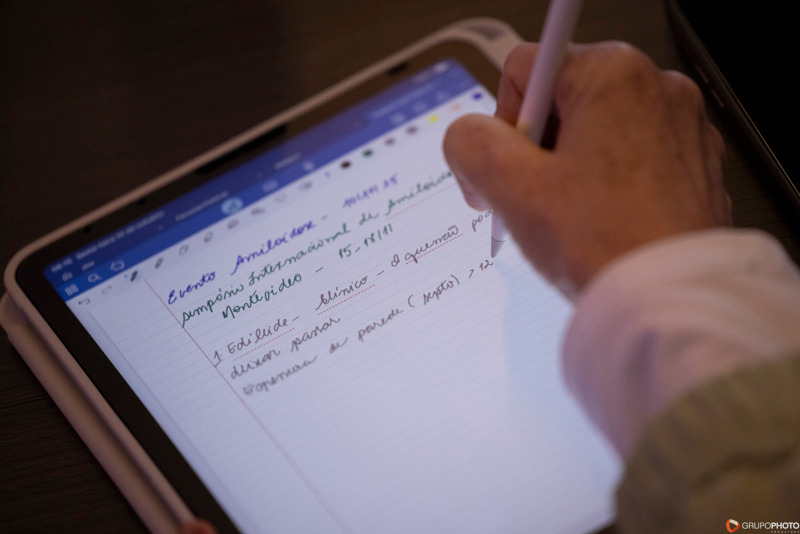 Evento Amiloidose - 10/11/25
simpósio Internacional de Amiloidose
Montevideo - 15-18/11
1. Edileide - Clínico - O quenão pod
deixar passar
Espessura de parede (septo) > 12
GRUPOPHOTO